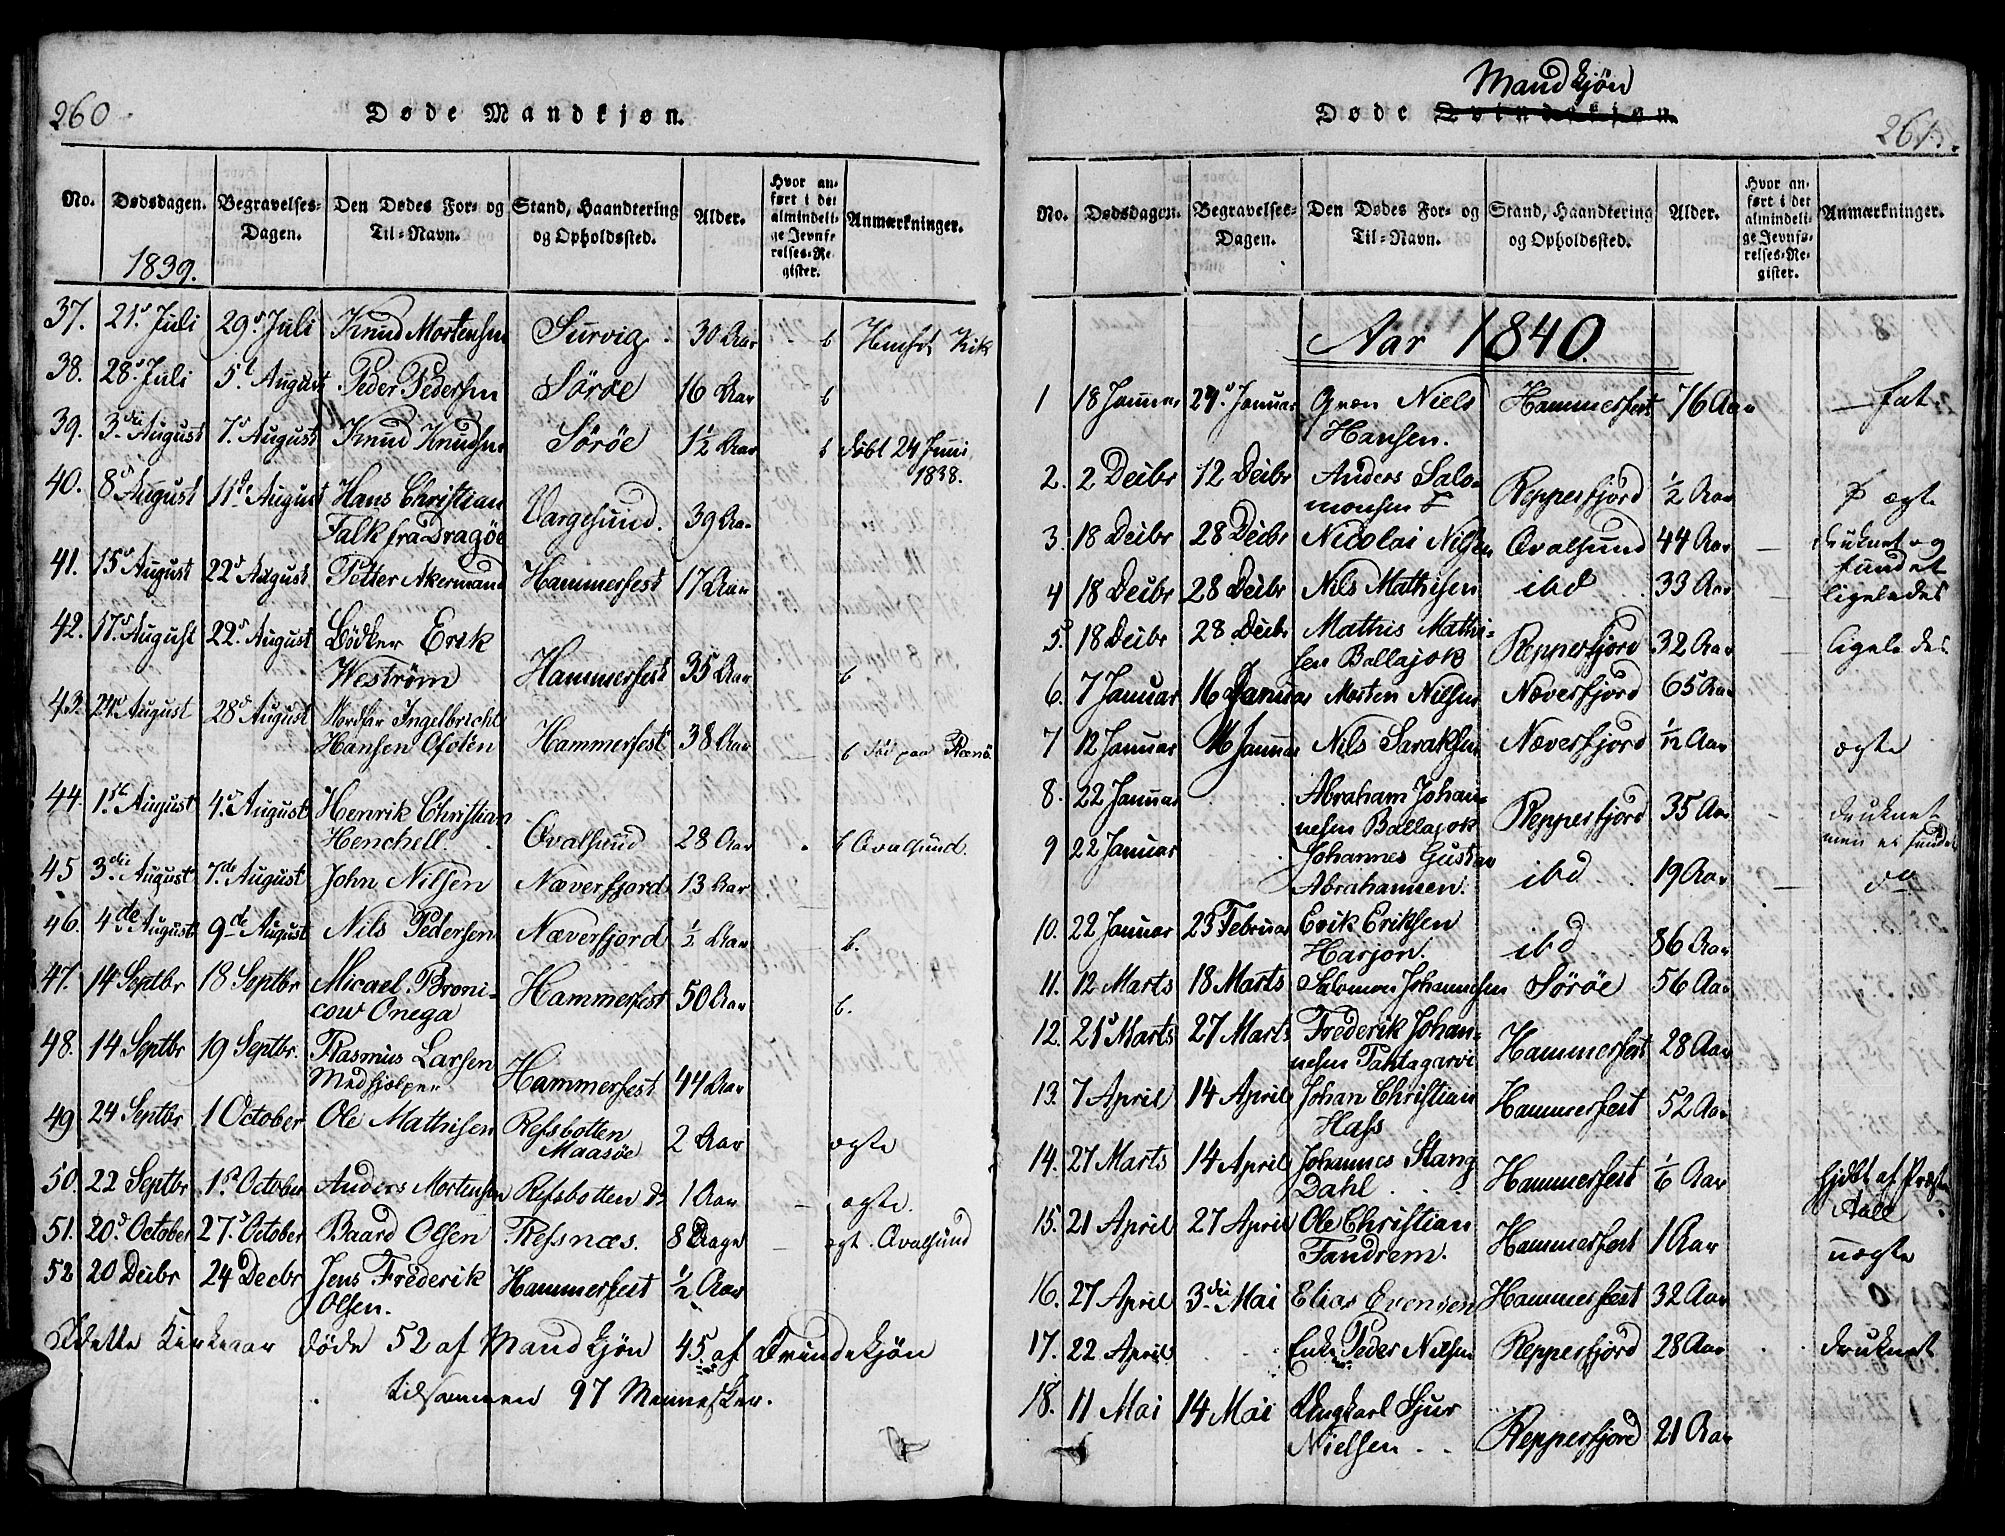 260
Døde Mandkjøn.
No. Dødsdagen. Begravelses-Dagen. Den Dødes For- og Til-Navn. Stand, Haandtering og Opholdssted. Alder. Hvor anført i det almindelige Jevnførelses-Register. Anmærkninger.
1839.
37. 21s Juli 29s Juli Knud Mortensen Survig 30 Aar b
38. 28s Juli 5t August Peder Pedersen Sørøe 16 Aar b
39. 3die August 7s August Knud Knudsen Sørøe 1½ Aar b døbt 24 Juni
1838.
40. 8s August 11te August Hans Christian
Falk fra Dragöe Vargesund. 39 Aar
41. 15s August 22s August Petter Akermand Hammerfest 17 Aar
42. 17s August 22s August Bödker Erik
Weström Hammerfest 35 Aar b
43. 24s August 28s August Nordfar Ingelbricht
Hansen Ofoten Hammerfest 38 Aar b
44. 1st August 4s August Henrik Christian
Henchell. Qvalsund 28 Aar b Qvalsund.
45 3die August 7de August John Nilsen Næverfjord 13 Aar
46. 4de August 9de August Nils Pedersen Næverfjord ½ Aar b.
47. 14 Septbr 18 Septbr Micael Broni-
cow Onega Hammerfest 50 Aar b.
48. 14 Septbr 19 Septbr. Rasmus Larsen
Medhjelper Hammerfest 44 Aar
49 24 Septbr 1 October Ole Mathisen Refsbotten
Maasøe 2 Aar ægte
50. 22 Septbr 1st October Anders Mortensen Refsbotten do 1 Aar ægte.
51. 20s October 27s October Baard Olsen Refsnæs. 8 Dage ægt. Qvalsund
52 20 Decbr 24 Decbr Jens Frederik
Olsen. Hammerfest ½ Aar
I dette Kirkeaar døde 52 af Mandkjøn 45 af Qvindekjøn
tilsammen 97 Mennesker.
261.
Mandkjøn
Døde Qvindekjøn.
No. Dødsdagen. Begravelses-Dagen. Den Dødes For- og Til-Navn. Stand, Haandtering og Opholdssted. Alder. Hvor anført i det almindelige Jevnførelses-Register. Anmærkninger.
Aar 1840.
1 18 Januar 24s Januar Qvæn Niels
Hansen. Hammerfest 76 Aar fat.
2. 2 Decbr 12 Decbr Anders Salo-
monsen Repperfjord ½ Aar ægte
3. 18 Decbr 28 Decbr Nicolai Nilsen Qvalsund 44 Aar druknet og
fundet
4 18 Decbr 28 Decbr Nils Mathisen ibd 33 Aar ligeledes
5. 18 Decbr 28 Decbr Mathis Mathi-
sen Ballajok Repperfjord 32 Aar ligeledes
6. 7 Januar 16 Januar Morten Nilsen Næverfjord 65 Aar
7 12 Januar 16 Januar Nils Saraksen Næverfjord 1/12 Aar ægte
8. 22 Januar Abraham Johan-
nesen Ballajok Repperfjord 35 Aar druknet
men ei funden
9 22 Januar Johannes Gustav
Abrahamsen. ibd 19 Aar do
10. 22 Januar 23 Februar Erik Eriksen
Harjon. ibd 86 Aar
11. 12 Marts 18 Marts Salomon Johannesen Sørøe 56 Aar
12. 21s Marts 27 Marts Frederik Johan-
nesen Tahtagarvi Hammerfest 28 Aar
13. 7 April 14 April Johan Christian
Hass Hammerfest 52 Aar
14. 27 Marts 14 April Johannes Stang
Dahl Hammerfest 1/6 Aar hjdbt af Præsten
Aall
15. 21 April 27 April Ole Christian
Tandrem. Hammerfest 1 Aar uægte
16. 27 April 3die Mai Elias Evensen Hammerfest 32 Aar 0
17. 22 April Peder Nilsen Repperfjord 28 Aar druknet
18. 11 Mai 14 Mai Ungkarl Sjur
Nielsen Repperfjord 21 Aar